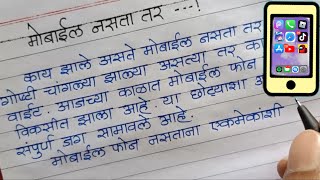 मोबाईल नसता तर ---!
काय झाले असते मोबाईल नसता तर
गोष्टी चांगल्या झाल्या असत्या तर का
वाईट. आजच्या काळात मोबाईल फोन
विकसीत झाला आहे. या छोट्याशा
संपुर्ण जग सामावले आहे.
मोबाईल फोन नसताना एकमेकांशी